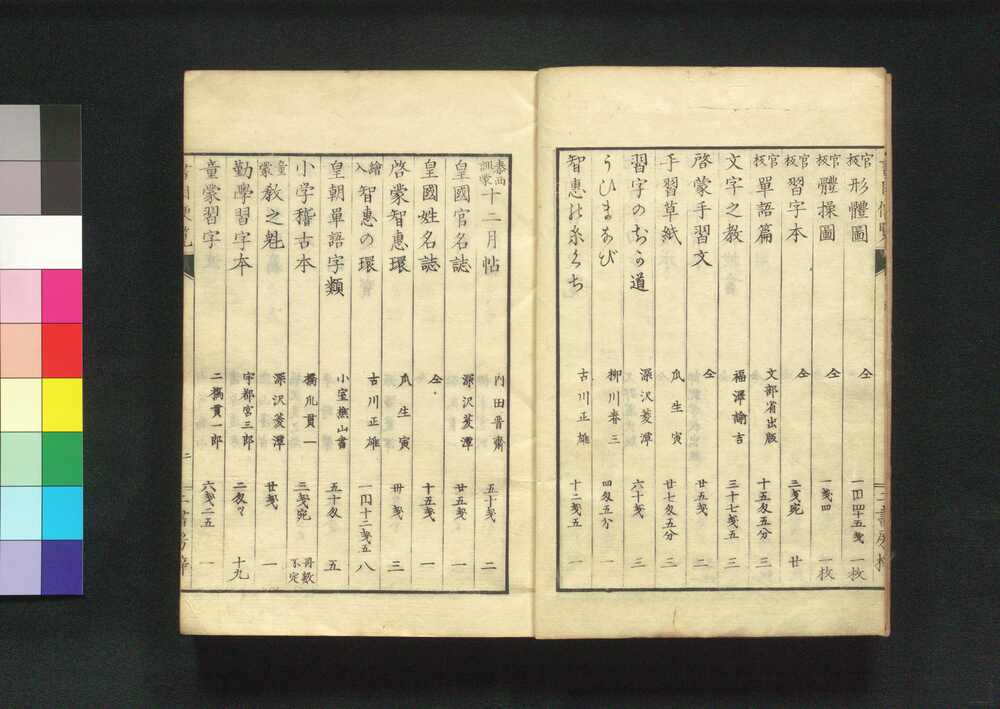 官板 形體圖 仝 一円四十五戔 一枚
官板 體操圖 仝 一戔四 一枚
官板 習字本 仝 三戔宛 廿
官板 單語篇 文部省出版 十五匁五分 三
文字之教 福澤諭吉 三十七戔五 三
啓蒙手習文 仝 廿五戔 二
手習草紙 瓜生寅 廿七匁五分 三
習字のちか道 深沢菱潭 六十戔 三
うひまなび 柳川春三 四匁五分 一
智惠の糸くち 古川正雄 十二戔五 一
泰西訓蒙 十二月帖 内田晋齋 五十戔 二
皇國官名誌 深沢菱潭 廿五戔 一
皇國姓名誌 仝 十五戔 一
啓蒙智惠環 瓜生寅 卅戔 三
繪入 智惠の環 古川正雄 一円十二戔五 八
皇朝單語字類 小室樵山書 五十匁 五
小学稽古本 橋爪貫一 三戔宛 冊数不定
童蒙 教之魁 深沢菱潭 廿戔 一
勤學習字本 宇都宮三郎 二匁ツヽ 十九
童蒙習字 二橋貫一郎 六戔二五 一
二